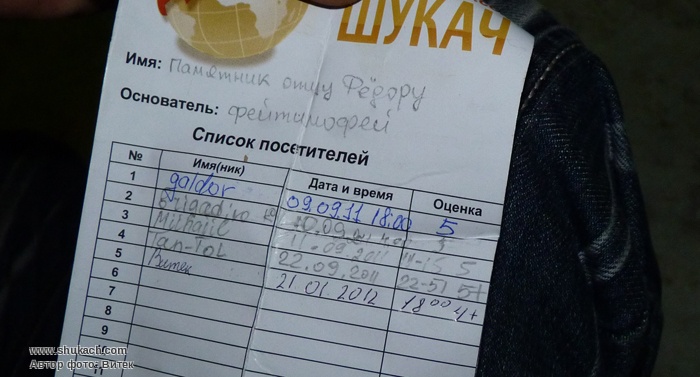 ШУКАЧ
Имя: Памятник отцу Фёдору
Основатель: фейтимофей
Список посетителей
№ Имя(ник) Дата и время Оценка
1 galdor 09.09.11 18.00 5
2 Brigadiro 10.09. 5
3 Mithail 11.09.2011 5
4 Tan-Tol 22.09.2011 22-51 5+
5 Витек 21.01.2012 18 00 4+
6
7
8
9
10
11
www.shukach.com
Автор фото: Витек